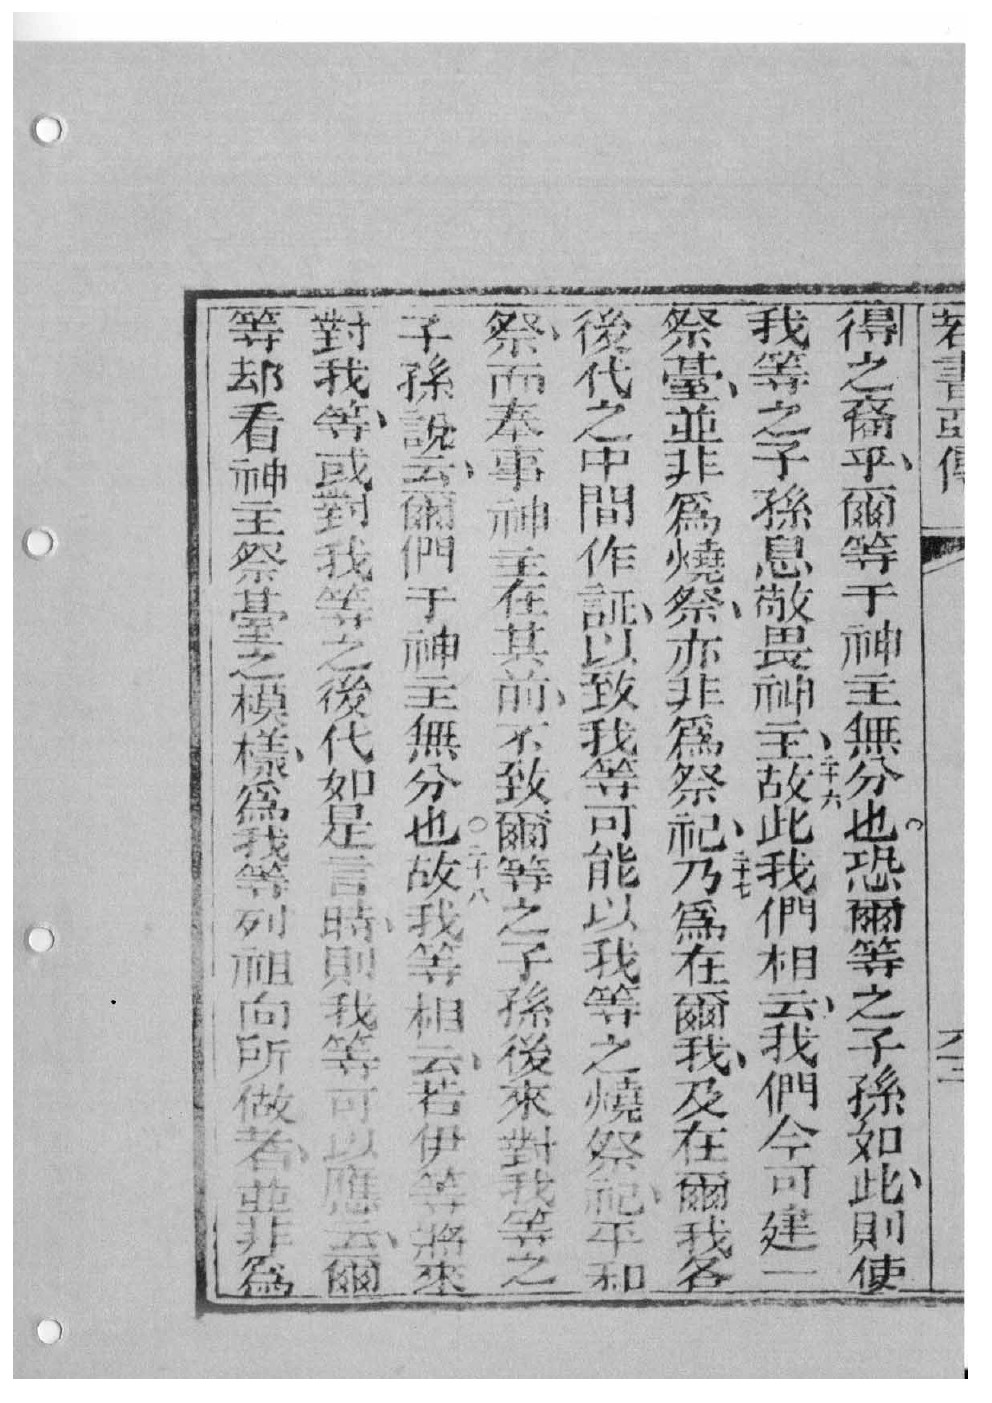 若書亞傳
六十二
得之裔乎、爾等于神主無分也。恐爾等之子孫如此、則使
我等之子孫息敵畏神主、二十六故此我們相云、我們今可建一
祭臺、並非爲燒祭、亦非爲祭祀、二十七乃爲在爾我、及在爾我各
後代之中間作証、以致我等可能以我等之燒祭祀、平和
祭、而奉事神主在其前、不致爾等之子孫後來對我等之
子孫說云、爾們于神主無分也○二十八故我等相云、若伊等將來
對我等、或對我等之後代如是言時、則我等可以應云、爾
等却看神主祭臺之模樣、爲我等列祖向所做者、並非爲